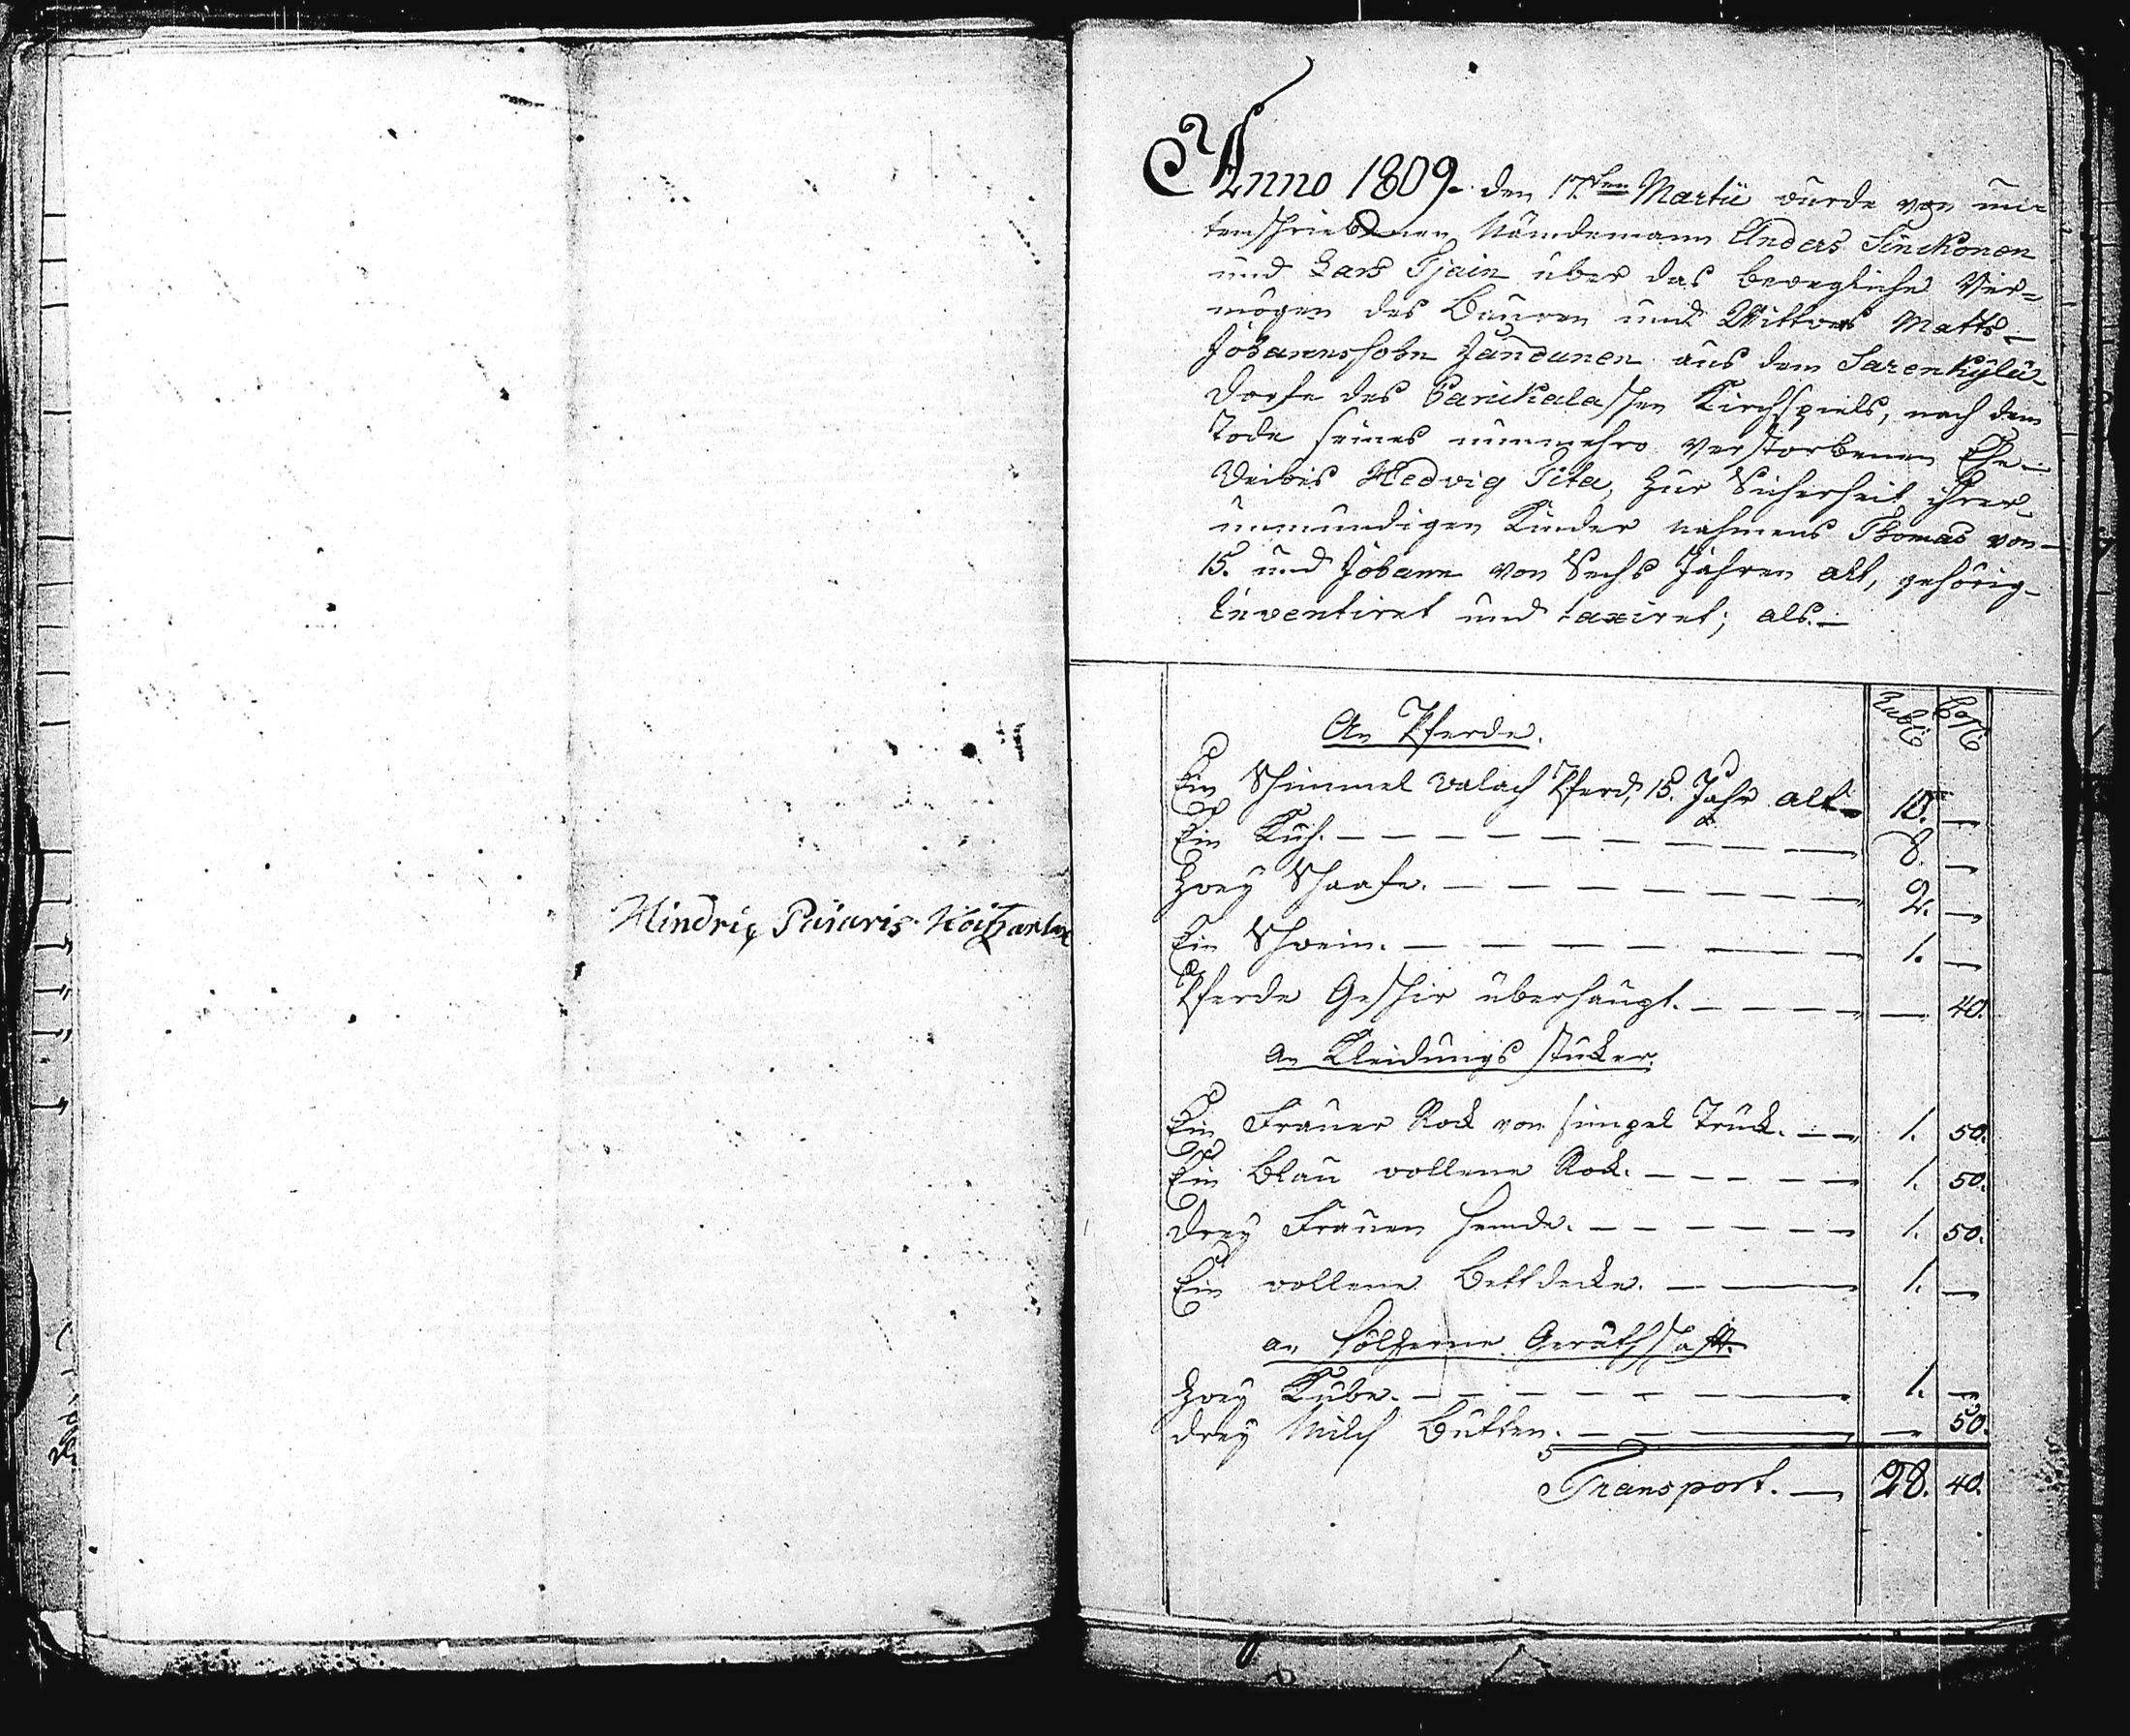 Hindric Paiaris Koitzanlax
Anno 1809. den 17ten Martii wurde von un=
tenschriebenen Nämdemann Anders Sinckonen
und Lars Tjäin über das bewegliche Ver=
mögen des Bauren und Wittwers Matts
Johannssohn Jandunen aus dem Sarenkylä-
Dorfe des Parikalaschen Kirchspiels, nach dem
Tode seines nunmehro verstorbenen Ehe-
Weibes Hedvig Tita, zur Sicherheit ihrer
unmundigen Kinder nahmens Thomas von
15. und Johann von Sechs Jahren alt, gehörig
Inventiret und taxiret; als.—
Rubl: Cop:
An Pferde.
Ein Schimmel Walach Pferd, 15. Jahr alt 10. —
Ein Kuh. — 8. —
Zwey Schaafe. — 2. —
Ein Schwein. — 1. —
Pferde Geschir überhaupt. — — 40.
An Kleidungs stüker.
Ein Frauen Rock von simpel Trück. — 1. 50.
Ein Blau wollene Rock. — 1. 50.
Drey Frauen Hemde. — 1. 50.
Ein wollene Bettdecke. — 1. —
An hölzerne Geräthschaft.
Zwey Kübe. — 1. —
Drey Milch Bütten. — — 50.
Transport. — 28. 40.